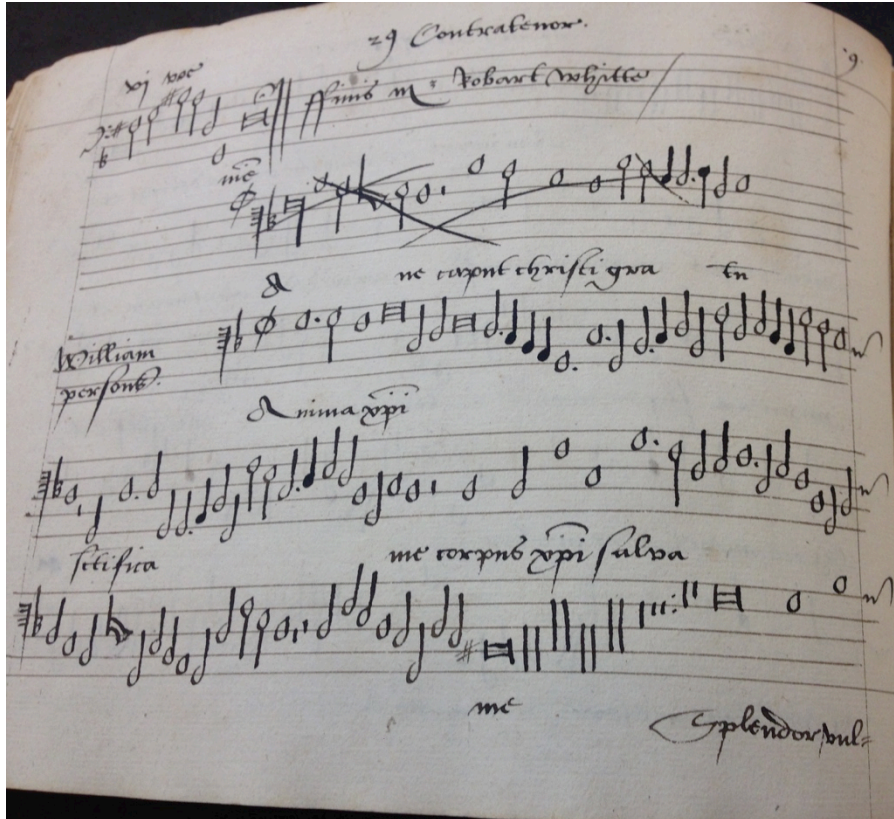 29 Contratenor.
9
vj voc
ffinis m : Robart Whitte
me
A ne caput christi gra tn
William
persons.
A nima xpi
sctifica me corpus xpi salva
me
Splendor vul=